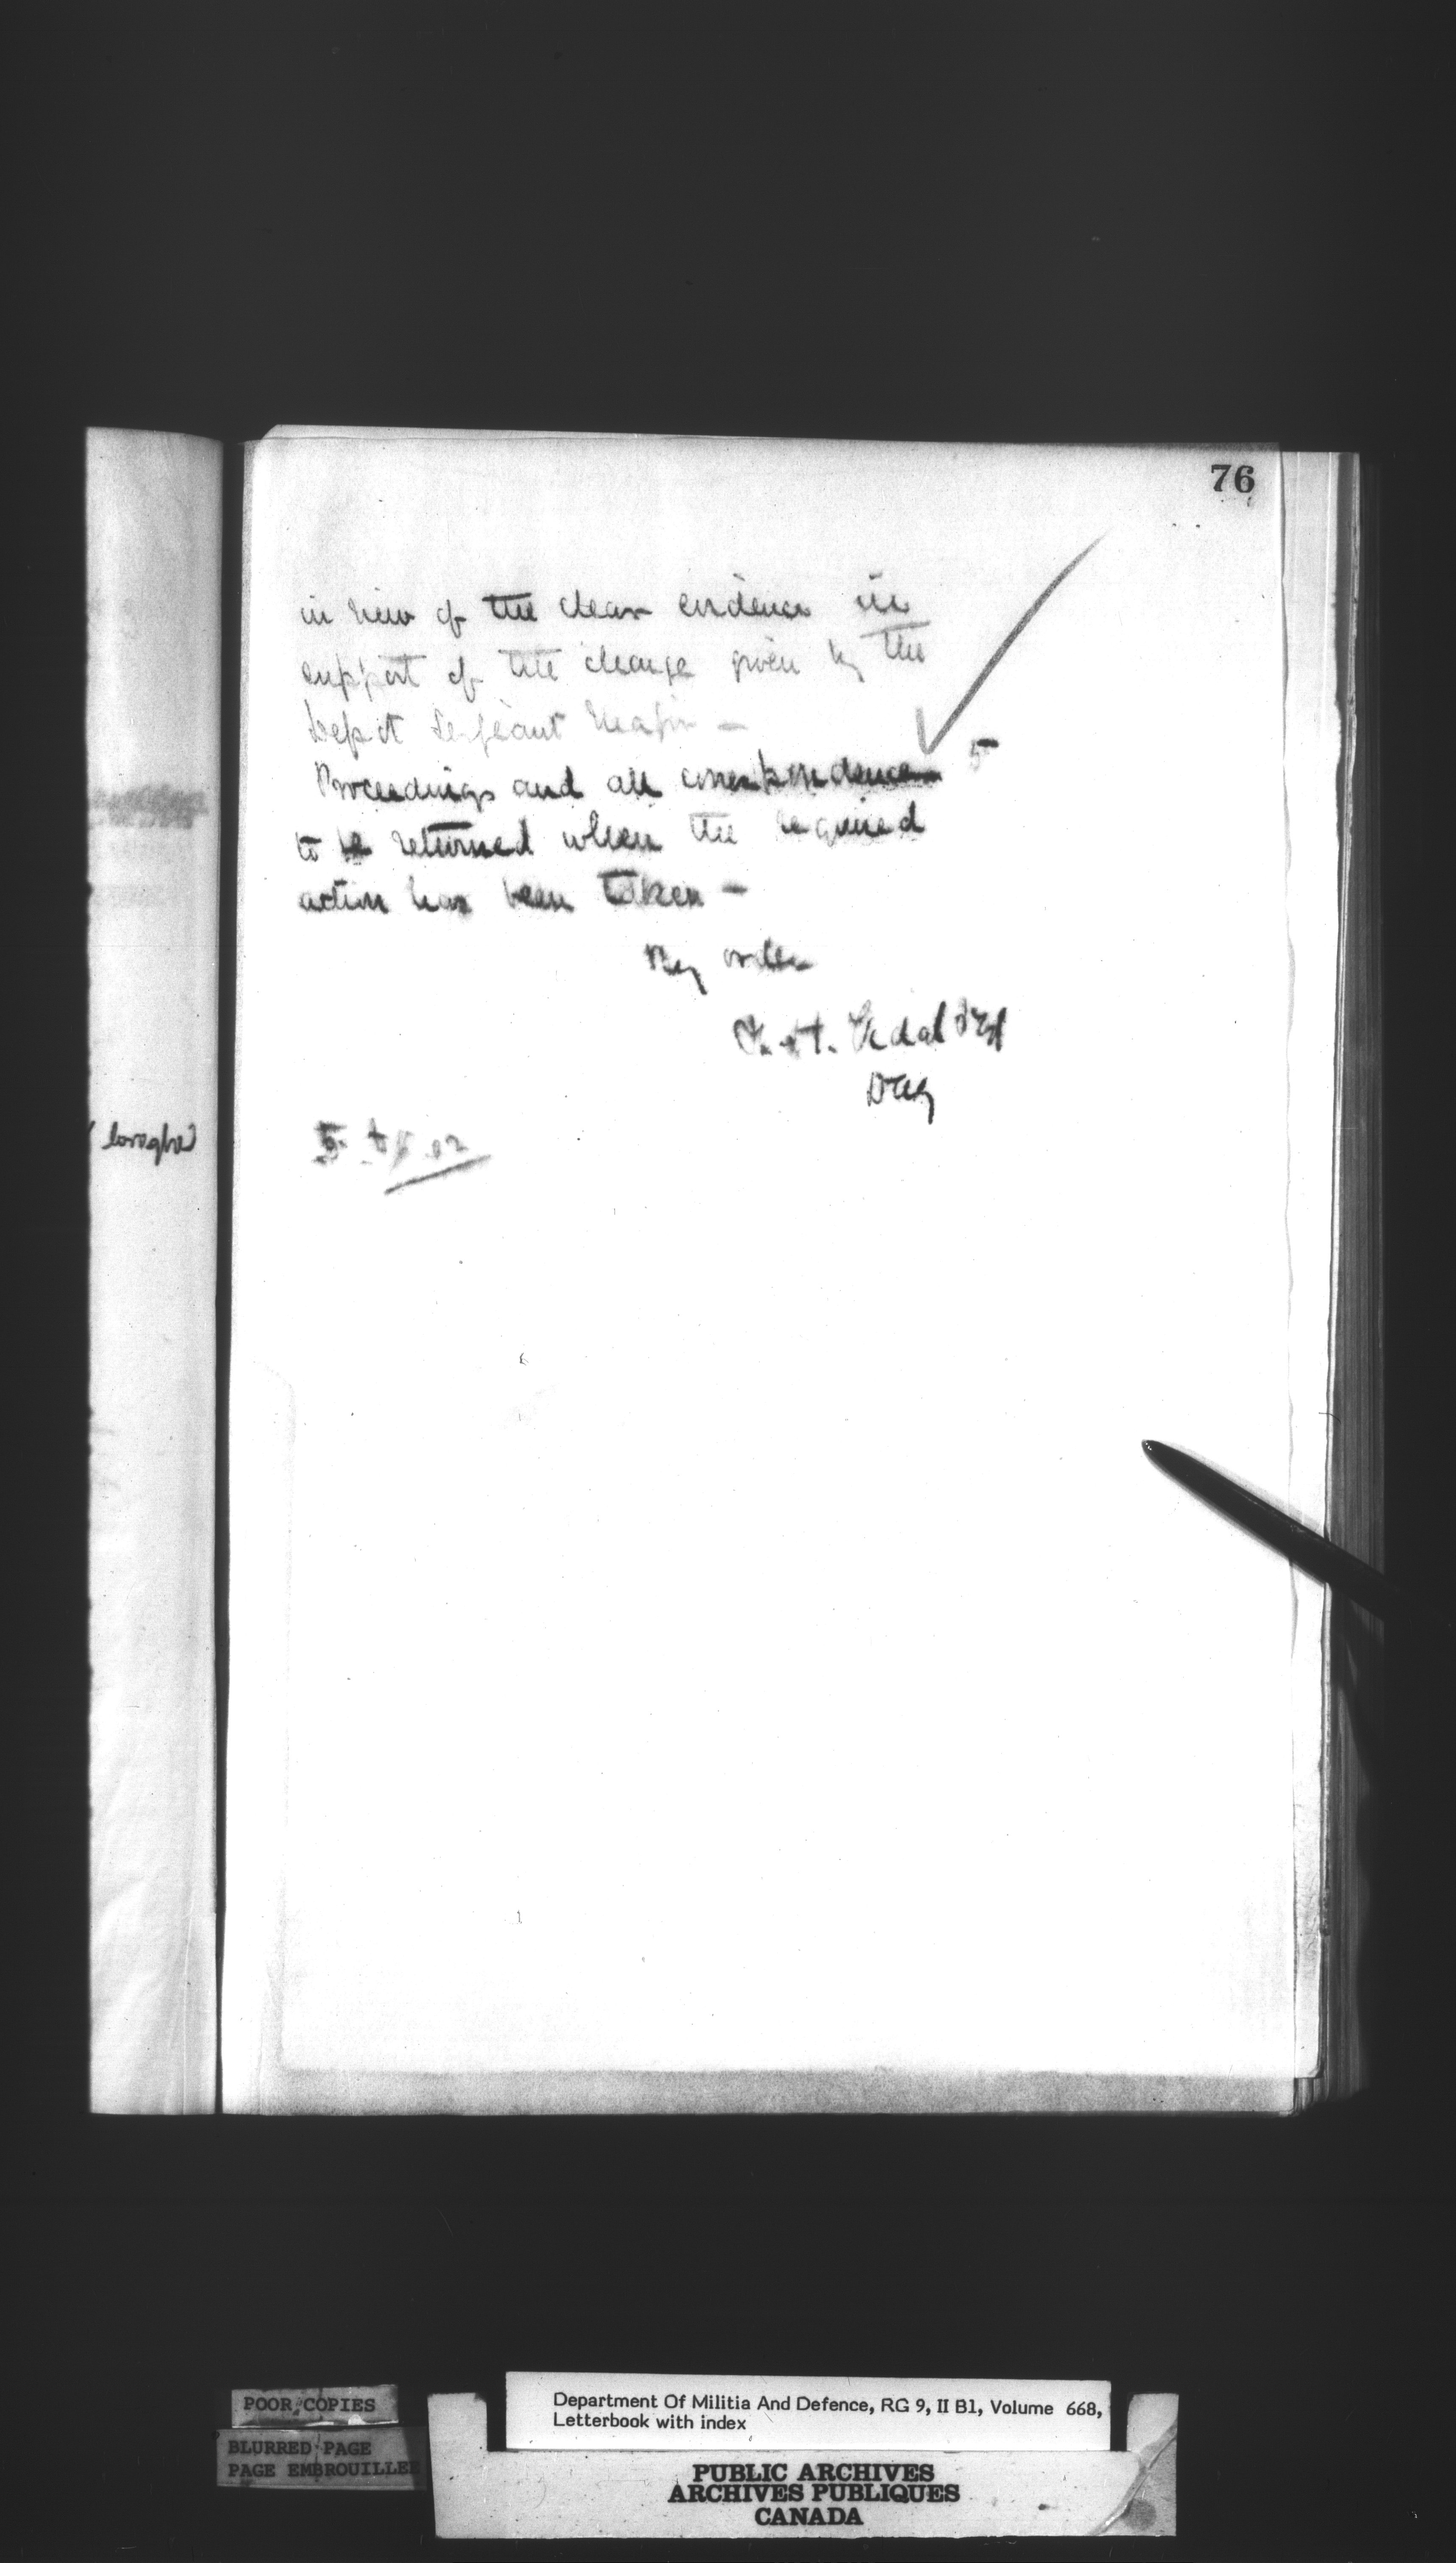 76
in view of the clear evidence in
support of the charge given by the
Depôt Sergeant Major —
Proceedings and all correspondence 5
to be returned when the required
action has been taken —
By order
Vidal
DAG
5. .02
Corporal
POOR COPIES
BLURRED PAGE
PAGE EMBROUILLEE
Department Of Militia And Defence, RG 9, II B1, Volume 668,
Letterbook with index
PUBLIC ARCHIVES
ARCHIVES PUBLIQUES
CANADA